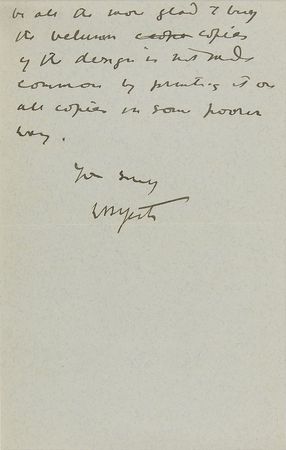 be all the more glad to buy
the velum copies
if the design is not made
common by printing it on
all copies in some poorer
way.
Yrs sny
WBYeats